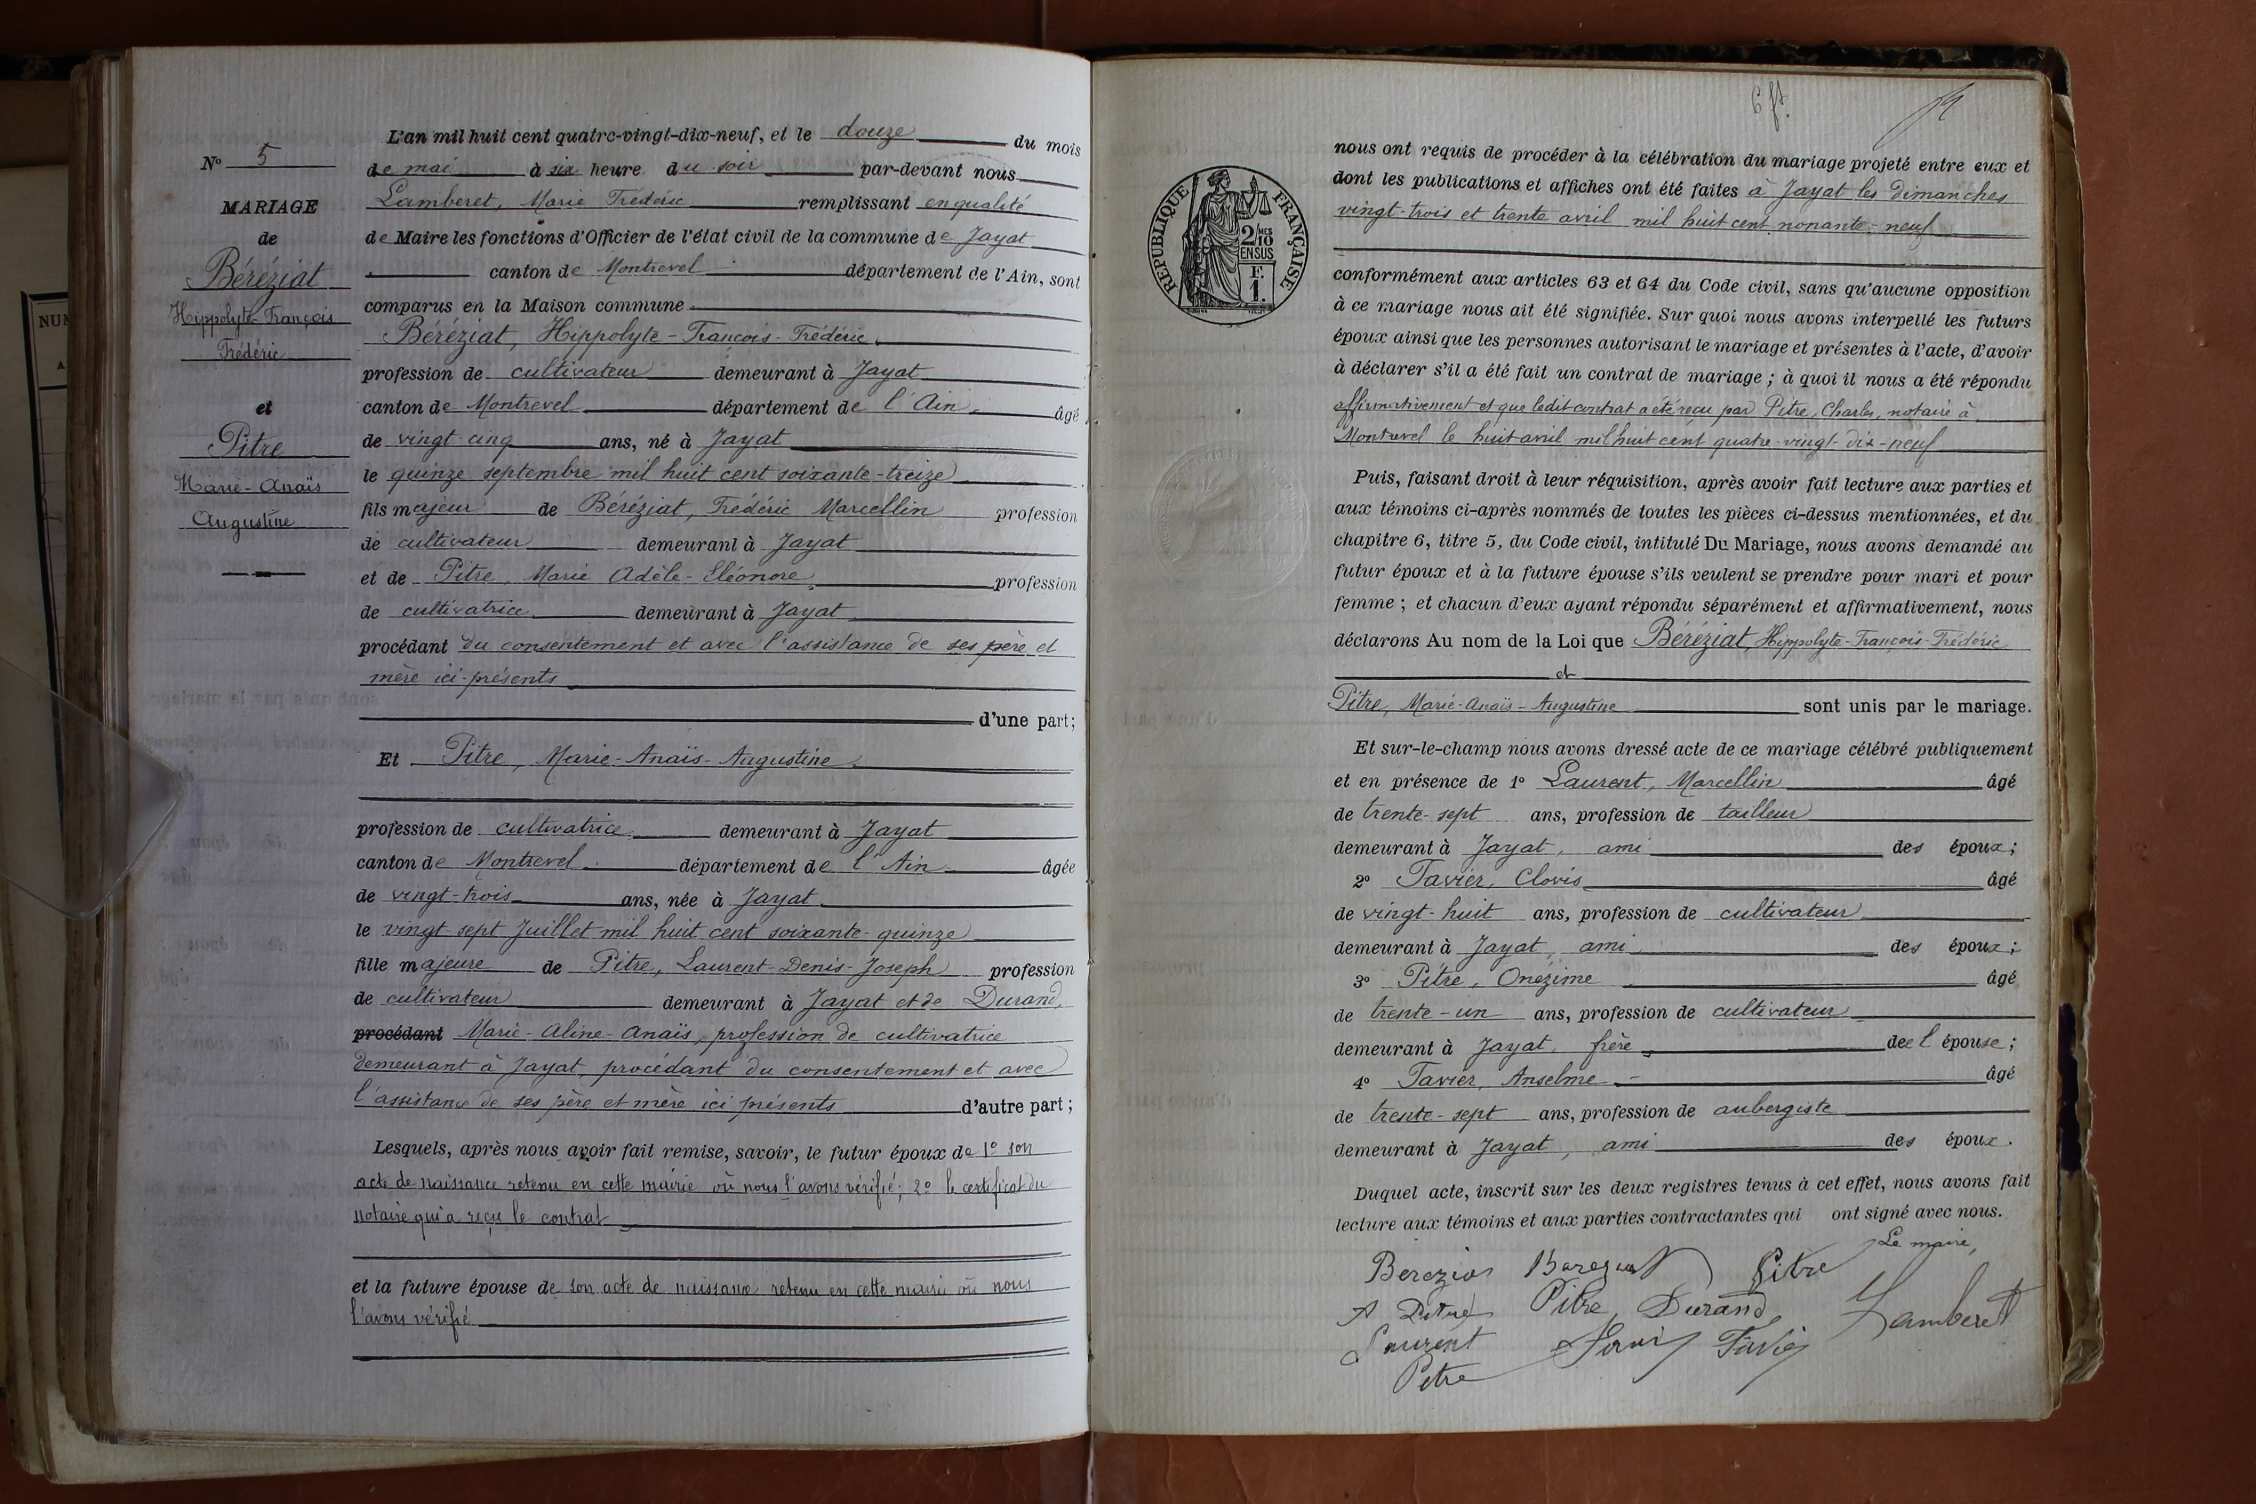 N° 5
MARIAGE
de
Béréziat
Hippolyte-François
Frédéric
et
Pitre
Marie-Anaïs
Augustine
L'an mil huit cent quatre-vingt-dix-neuf, et le douze du mois
de mai à six heure du soir par-devant nous
Lamberet, Marie Frédéric remplissant en qualité
de Maire les fonctions d'Officier de l'état civil de la commune de Jayat
canton de Montrevel département de l'Ain, sont
comparus en la Maison commune
Béréziat, Hippolyte-François-Frédéric
profession de cultivateur demeurant à Jayat
canton de Montrevel département de l'Ain âgé
de vingt-cinq ans, né à Jayat
le quinze septembre mil huit cent soixante-treize
fils majeur de Béréziat, Frédéric Marcellin profession
de cultivateur demeurant à Jayat
et de Pitre, Marie Adèle-Eléonore profession
de cultivatrice demeurant à Jayat
procédant du consentement et avec l'assistance de ses père et
mère ici-présents
d'une part;
Et Pitre, Marie-Anaïs-Augustine
profession de cultivatrice demeurant à Jayat
canton de Montrevel département de l'Ain âgée
de vingt-trois ans, née à Jayat
le vingt sept Juillet mil huit cent soixante-quinze
fille majeure de Pitre, Laurent-Denis-Joseph profession
de cultivateur demeurant à Jayat et de Durand,
procédant Marie-Aline-Anaïs, profession de cultivatrice
demeurant à Jayat, procédant du consentement et avec
l'assistance de ses père et mère ici présents d'autre part;
Lesquels, après nous avoir fait remise, savoir, le futur époux de 1° son
acte de naissance retenu en cette mairie où nous l'avons vérifié; 2° le certificat du
notaire qui a reçu le contrat
et la future épouse de son acte de naissance retenu en cette mairie où nous
l'avons vérifié
RÉPUBLIQUE FRANÇAISE
2/10 MES
EN SUS
F.
1.
nous ont requis de procéder à la célébration du mariage projeté entre eux et
dont les publications et affiches ont été faites à Jayat les dimanches
vingt-trois et trente avril mil huit cent nonante-neuf
conformément aux articles 63 et 64 du Code civil, sans qu'aucune opposition
à ce mariage nous ait été signifiée. Sur quoi nous avons interpellé les futurs
époux ainsi que les personnes autorisant le mariage et présentes à l'acte, d'avoir
à déclarer s'il a été fait un contrat de mariage; à quoi il nous a été répondu
affirmativement et que ledit contrat a été reçu par Pitre, Charles, notaire à
Montrevel le huit avril mil huit cent quatre-vingt-dix-neuf
Puis, faisant droit à leur réquisition, après avoir fait lecture aux parties et
aux témoins ci-après nommés de toutes les pièces ci-dessus mentionnées, et du
chapitre 6, titre 5, du Code civil, intitulé Du Mariage, nous avons demandé au
futur époux et à la future épouse s'ils veulent se prendre pour mari et pour
femme; et chacun d'eux ayant répondu séparément et affirmativement, nous
déclarons Au nom de la Loi que Béréziat, Hippolyte-François-Frédéric
et
Pitre, Marie-Anaïs-Augustine sont unis par le mariage.
Et sur-le-champ nous avons dressé acte de ce mariage célébré publiquement
et en présence de 1° Laurent, Marcellin âgé
de trente-sept ans, profession de tailleur
demeurant à Jayat, ami des époux;
2° Tavier, Clovis âgé
de vingt-huit ans, profession de cultivateur
demeurant à Jayat, ami des époux;
3° Pitre, Onezime âgé
de trente-un ans, profession de cultivateur
demeurant à Jayat, frère de l'épouse;
4° Tavier, Anselme âgé
de trente-sept ans, profession de aubergiste
demeurant à Jayat, ami des époux.
Duquel acte, inscrit sur les deux registres tenus à cet effet, nous avons fait
lecture aux témoins et aux parties contractantes qui ont signé avec nous.
Le maire,
Pitre
A Pitre Pitre Durand Lamberet
Laurent
Pitre